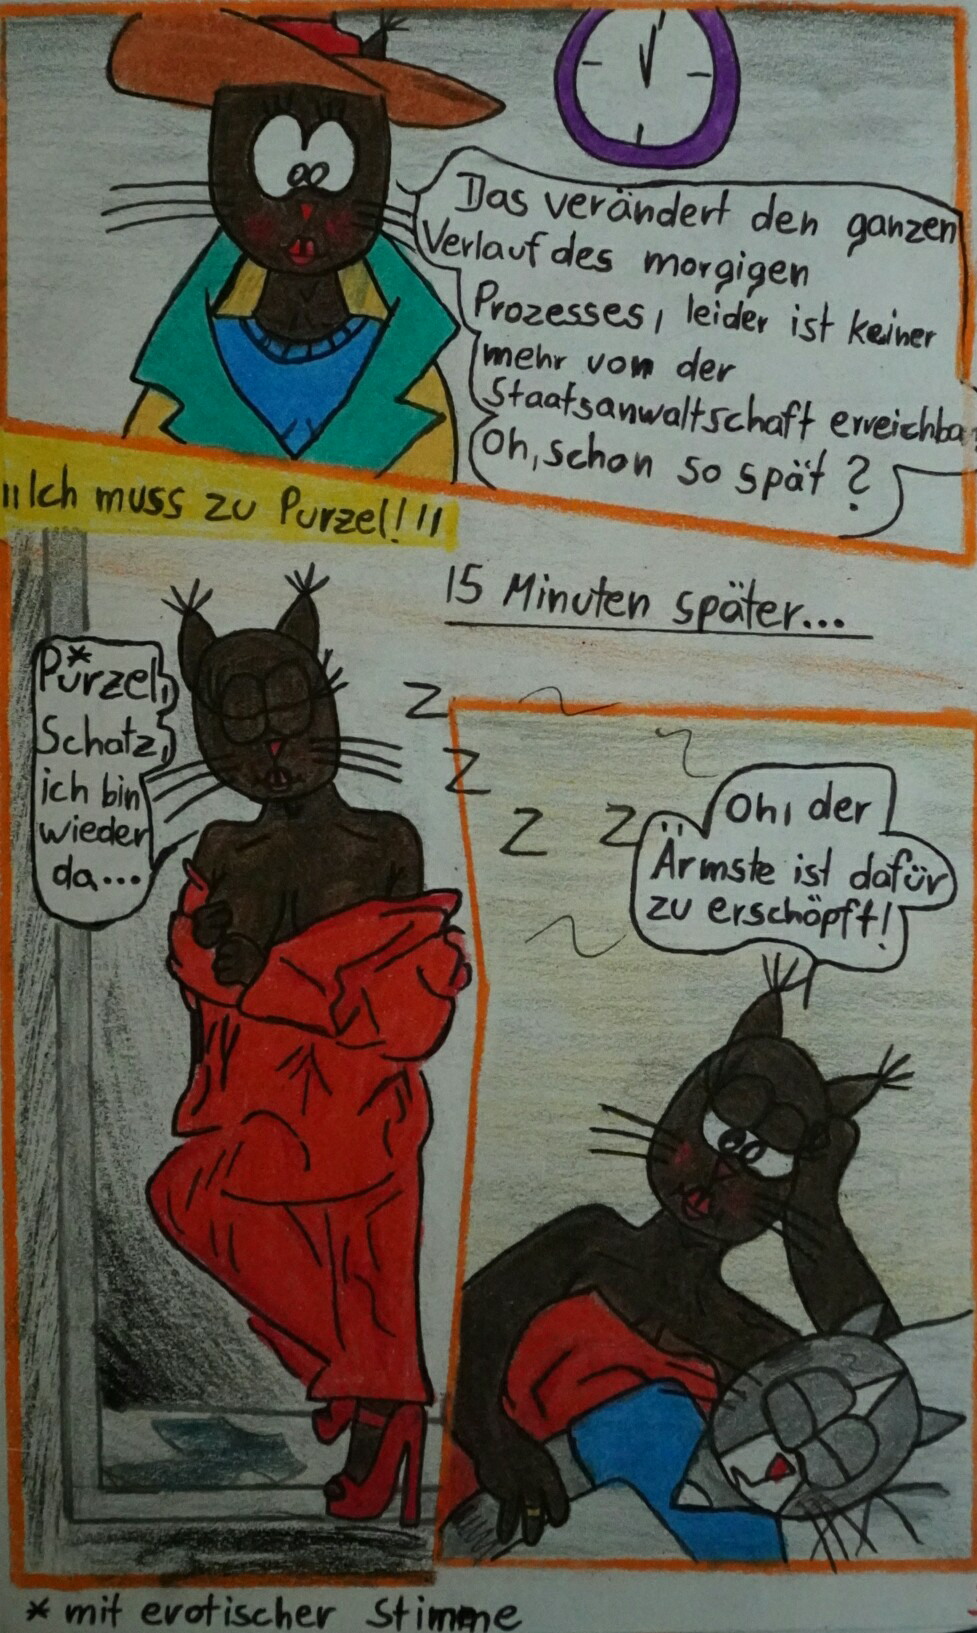 Das verändert den ganzen
Verlauf des morgigen
Prozesses, leider ist keiner
mehr von der
Staatsanwaltschaft erreichba
Oh, schon so spät?
"Ich muss zu Purzel!"
15 Minuten später...
Purzel,*
Schatz,
ich bin
wieder
da...
Z
Z
Z Z
Oh, der
Ärmste ist dafür
zu erschöpft!
* mit erotischer Stimme